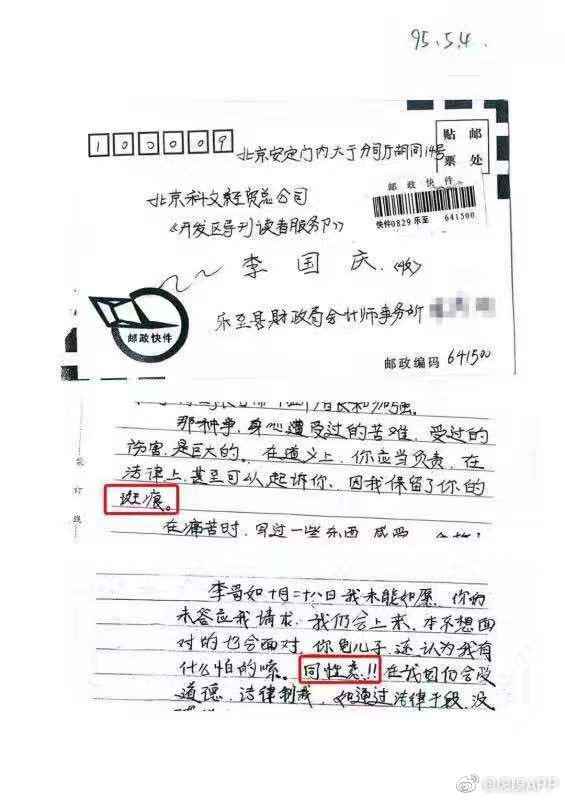 95.5.4.
100009
北京安定门内大于分司厅胡同14号
贴邮
票处
北京科文经贸总公司
《开发区导刊读者服务部》
邮政快件
快件0829 乐至 641500
李国庆 (收)
邮政快件
乐至县财政局会计师事务所
邮政编码 641500
那种事,身心遭受过的苦难,受过的
伤害,是巨大的。在道义上,你应当负责,在
法律上,甚至可以起诉你,因我保留了你的
斑痕。
在痛苦时,写过一些东西
订
线
李哥如十月二十八日我未能如愿,你
未答应我请求,我们会上来,本不想面
对的也会面对,你儿子,还认为我有
什么怕的嗦。同性恋!!在我国仍会受
道德,法律制裁,如通过法律手段,没
@悦悦APP